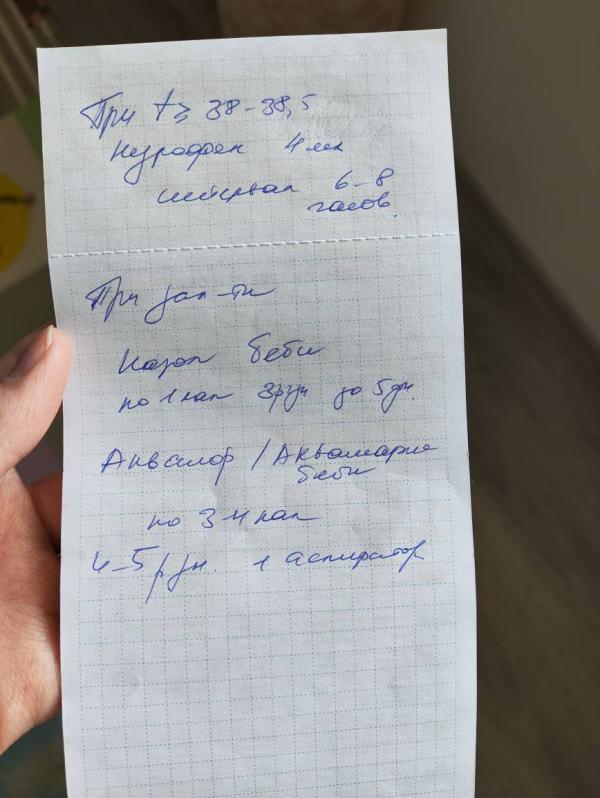 При t ≥ 38-38,5
Нурофен 4 мл
интервал 6-8
часов.
При зал-ти
Назол беби
по 1 кап 3 р/дн до 5 дн.
Аквалор / Аквамарис
беби
по 3-4 кап
4-5 р/дн. + аспиратор